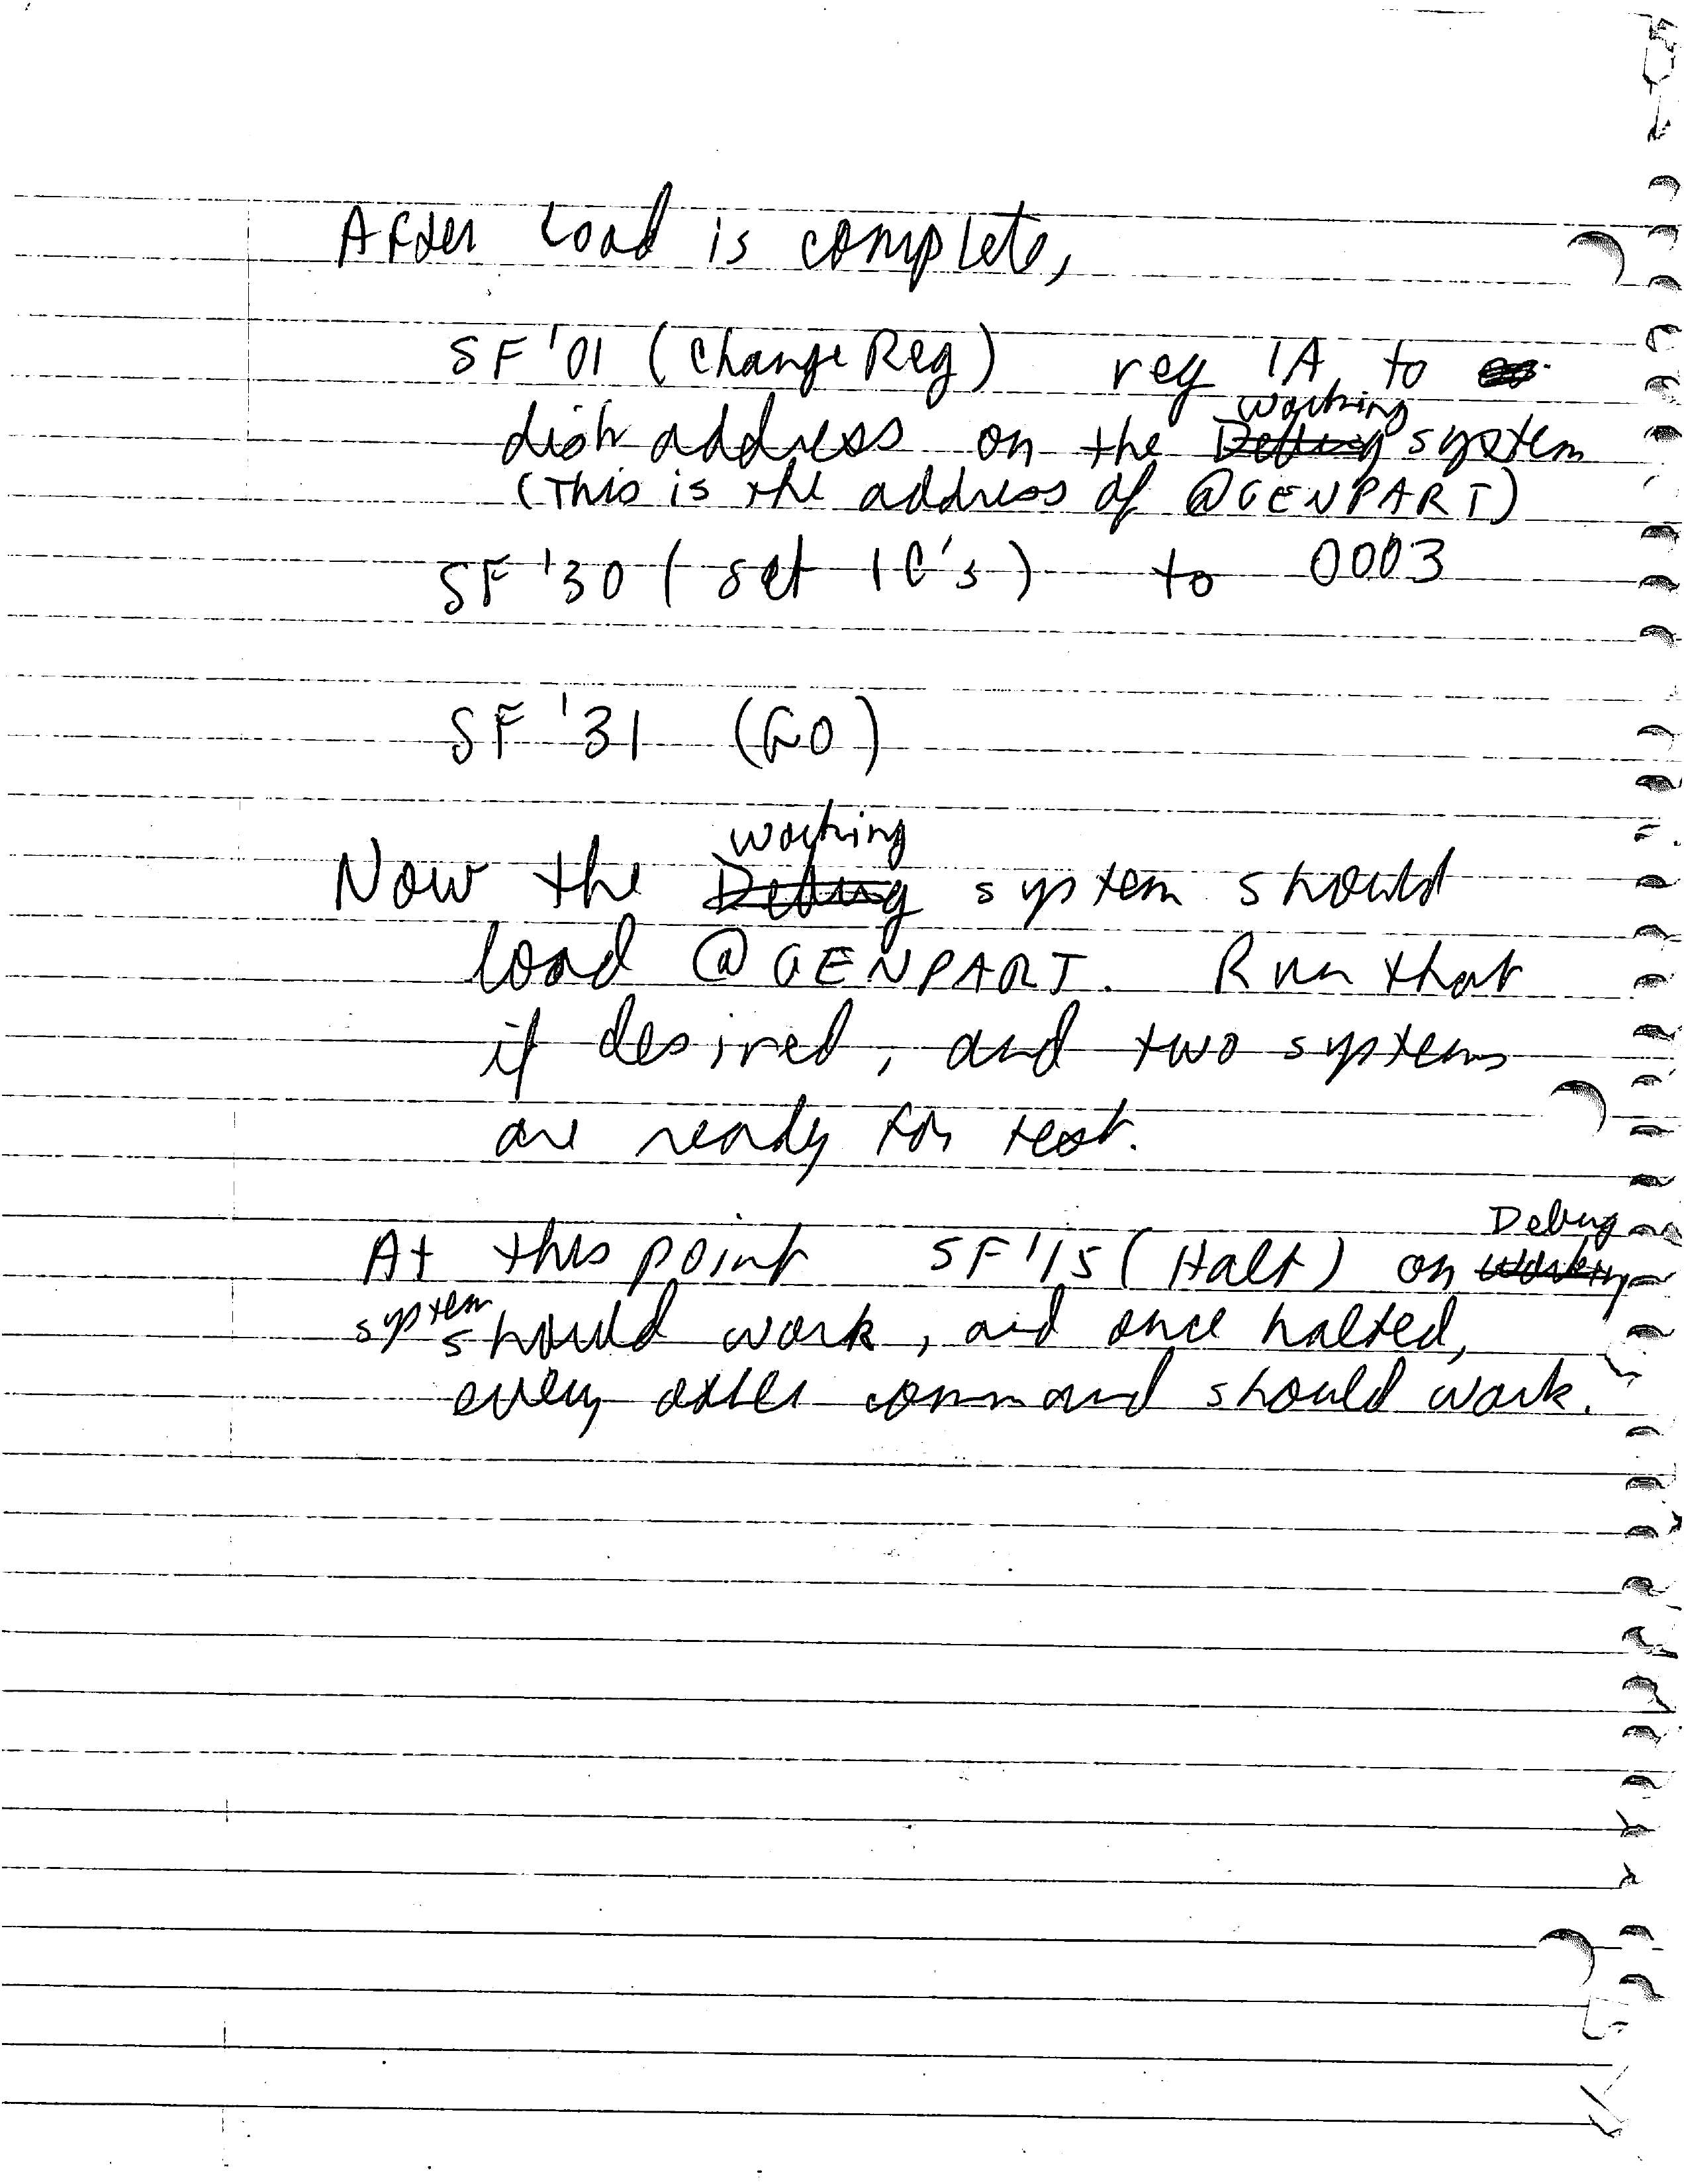 After load is complete,
SF '01 (Change Reg) reg 1A to
disk address on the working system
(This is the address of @GENPART)
SF '30 (set IC's) to 0003
SF '31 (GO)
Now the working system should
load @GENPART. Run that
if desired, and two systems
are ready for test.
At this point SF '15 (Halt) on Debug
system should work, and once halted,
every other command should work.